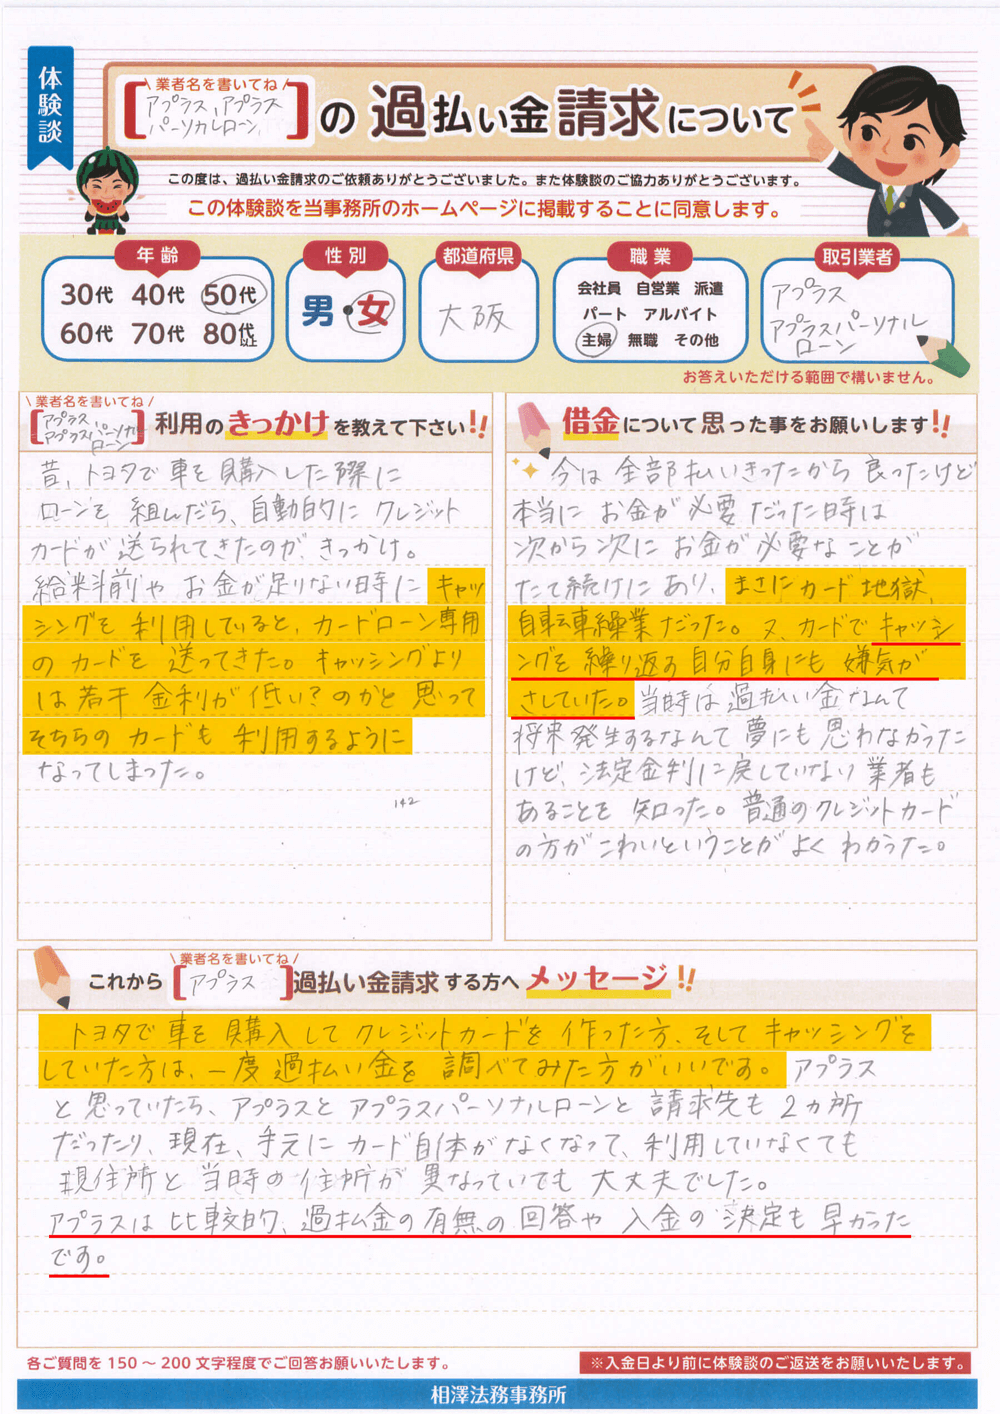 体験談
業者名を書いてね
アプラス、アプラス
パーソナルローン
の過払い金請求について
この度は、過払い金請求のご依頼ありがとうございました。また体験談のご協力ありがとうございます。
この体験談を当事務所のホームページに掲載することに同意します。
年齢
30代 40代 50代
60代 70代 80代以上
性別
男・女
都道府県
大阪
職業
会社員 自営業 派遣
パート アルバイト
主婦 無職 その他
取引業者
アプラス
アプラスパーソナル
ローン
お答えいただける範囲で構いません。
業者名を書いてね
アプラス
アプラスパーソナル
ローン
利用のきっかけを教えて下さい!!
昔、トヨタで車を購入した際に
ローンを組んだら、自動的にクレジット
カードが送られてきたのが、きっかけ。
給料前やお金が足りない時にキャッ
シングを利用していると、カードローン専用
のカードを送ってきた。キャッシングより
は若干金利が低い?のかと思って
そちらのカードも利用するように
なってしまった。
142
借金について思った事をお願いします!!
今は全部払いきったから良ったけど
本当にお金が必要だった時は
次から次にお金が必要なことが
たて続けにあり、まさにカード地獄、
自転車繰業だった。又、カードでキャッシ
ングを繰り返す自分自身にも嫌気が
さしていた。当時は過払い金なんて
将来発生するなんて夢にも思わなかった
けど、法定金利に戻していない業者も
あることを知った。普通のクレジットカード
の方がこわいということがよくわかった。
業者名を書いてね
これから[アプラス]過払い金請求する方へメッセージ!!
トヨタで車を購入してクレジットカードを作った方、そしてキャッシングを
していた方は、一度過払い金を調べてみた方がいいです。アプラス
と思っていたら、アプラスとアプラスパーソナルローンと請求先も2カ所
だったり、現在、手元にカード自体がなくなって、利用していなくても
現住所と当時の住所が異なっていても大丈夫でした。
アプラスは比較的、過払金の有無の回答や入金の決定も早かった
です。
各ご質問を150〜200文字程度でご回答お願いいたします。
※入金日より前に体験談のご返送をお願いいたします。
相澤法務事務所